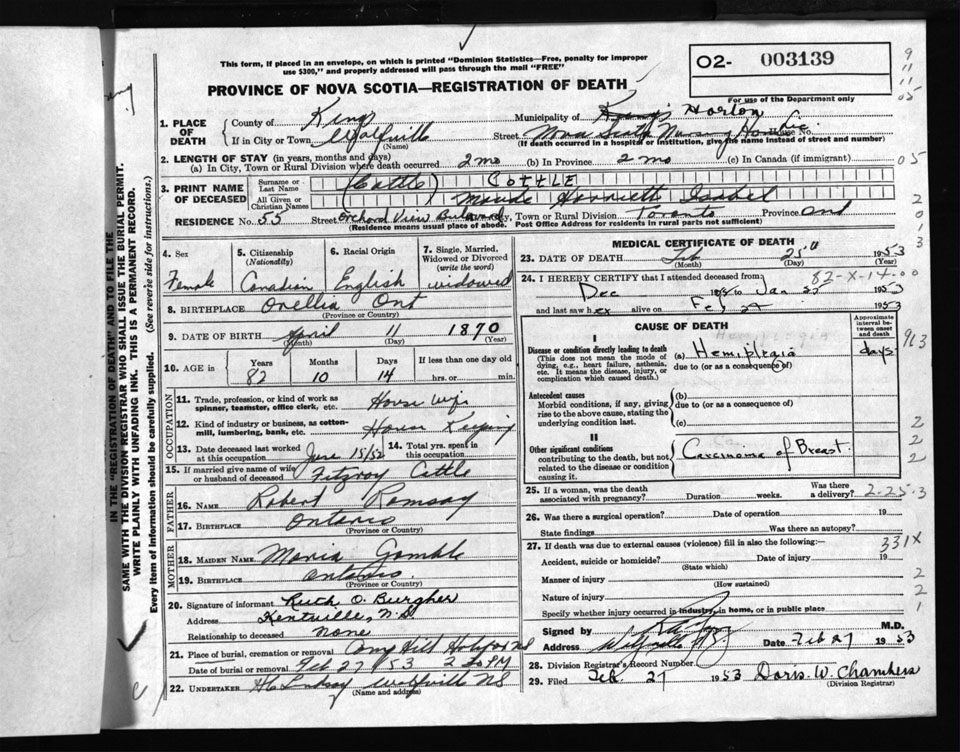 This form, if placed in an envelope, on which is printed "Dominion Statistics—Free, penalty for improper
use $300," and properly addressed will pass through the mail "FREE"
O2- 003139
For use of the Department only
PROVINCE OF NOVA SCOTIA—REGISTRATION OF DEATH
1. PLACE OF DEATH
County of Kings Municipality of Kings Horton
If in City or Town Wolfville (Name) Street Nova Scotia Nursing House No.
(If death occurred in a hospital or institution, give the name instead of street and number)
2. LENGTH OF STAY (in years, months and days)
(a) In City, Town or Rural Division where death occurred 2 mo (b) In Province 2 mo (c) In Canada (if immigrant)
3. PRINT NAME OF DECEASED
Surname or Last Name (Cottle) COTTLE
All Given or Christian Names Maude Harriett Isabel
RESIDENCE No. 55 Street Orchard View City, Town or Rural Division Toronto Province Ont
(Residence means usual place of abode. Post Office Address for residents in rural parts not sufficient)
4. Sex Female
5. Citizenship (Nationality) Canadian
6. Racial Origin English
7. Single, Married, Widowed or Divorced (write the word) widowed
8. BIRTHPLACE Orellia Ont
(Province or Country)
9. DATE OF BIRTH April 11 1870
(Month) (Day) (Year)
10. AGE in Years 82 Months 10 Days 14 If less than one day old hrs. or min.
OCCUPATION
11. Trade, profession, or kind of work as spinner, teamster, office clerk, etc. House wife
12. Kind of industry or business, as cotton-mill, lumbering, bank, etc. House Keeping
13. Date deceased last worked at this occupation June 15/52
14. Total yrs. spent in this occupation
15. If married give name of wife or husband of deceased Fitzroy Cottle
FATHER
16. Name Robert Ramsay
17. Birthplace Ontario
(Province or Country)
MOTHER
18. Maiden Name Maria Gamble
19. Birthplace Ontario
(Province or Country)
20. Signature of informant Ruth O. Burgher
Address Kentville, N.S.
Relationship to deceased None
21. Place of burial, cremation or removal Camp Hill
Date of burial or removal Feb 27 53
22. Undertaker Lindsay Wolfville NS
(Name and address)
MEDICAL CERTIFICATE OF DEATH
23. DATE OF DEATH Feb 25 1953
(Month) (Day) (Year)
24. I HEREBY CERTIFY that I attended deceased from 82-X-14-00
Dec to Jan 1953
and last saw her alive on 1953
CAUSE OF DEATH
Approximate interval between onset and death
I
Disease or condition directly leading to death
(This does not mean the mode of dying, e.g., heart failure, asthenia, etc. It means the disease, injury, or complication which caused death.)
(a) Hemiplegia days
due to (or as a consequence of)
Antecedent causes
Morbid conditions, if any, giving rise to the above cause, stating the underlying condition last.
(b)
due to (or as a consequence of)
(c)
II
Other significant conditions
contributing to the death, but not related to the disease or condition causing it.
Carcinoma of Breast.
25. If a woman, was the death associated with pregnancy? Duration weeks. Was there a delivery? 2-25-3
26. Was there a surgical operation? Date of operation 19
State findings Was there an autopsy?
27. If death was due to external causes (violence) fill in also the following:— 331X
Accident, suicide or homicide? Date of injury 19
(State which)
Manner of injury
(How sustained)
Nature of injury
Specify whether injury occurred in industry, in home, or in public place
Signed by M.D.
Address Wolfville N.S. Date Feb 27 1953
28. Division Registrar's Record Number
29. Filed Feb. 27 1953 Doris W. Chambers
(Division Registrar)
IN THE "REGISTRATION OF DEATH" AND TO FILE THE
SAME WITH THE DIVISION REGISTRAR WHO SHALL ISSUE THE BURIAL PERMIT.
WRITE PLAINLY WITH UNFADING INK. THIS IS A PERMANENT RECORD.
Every item of information should be carefully supplied. (See reverse side for instructions.)